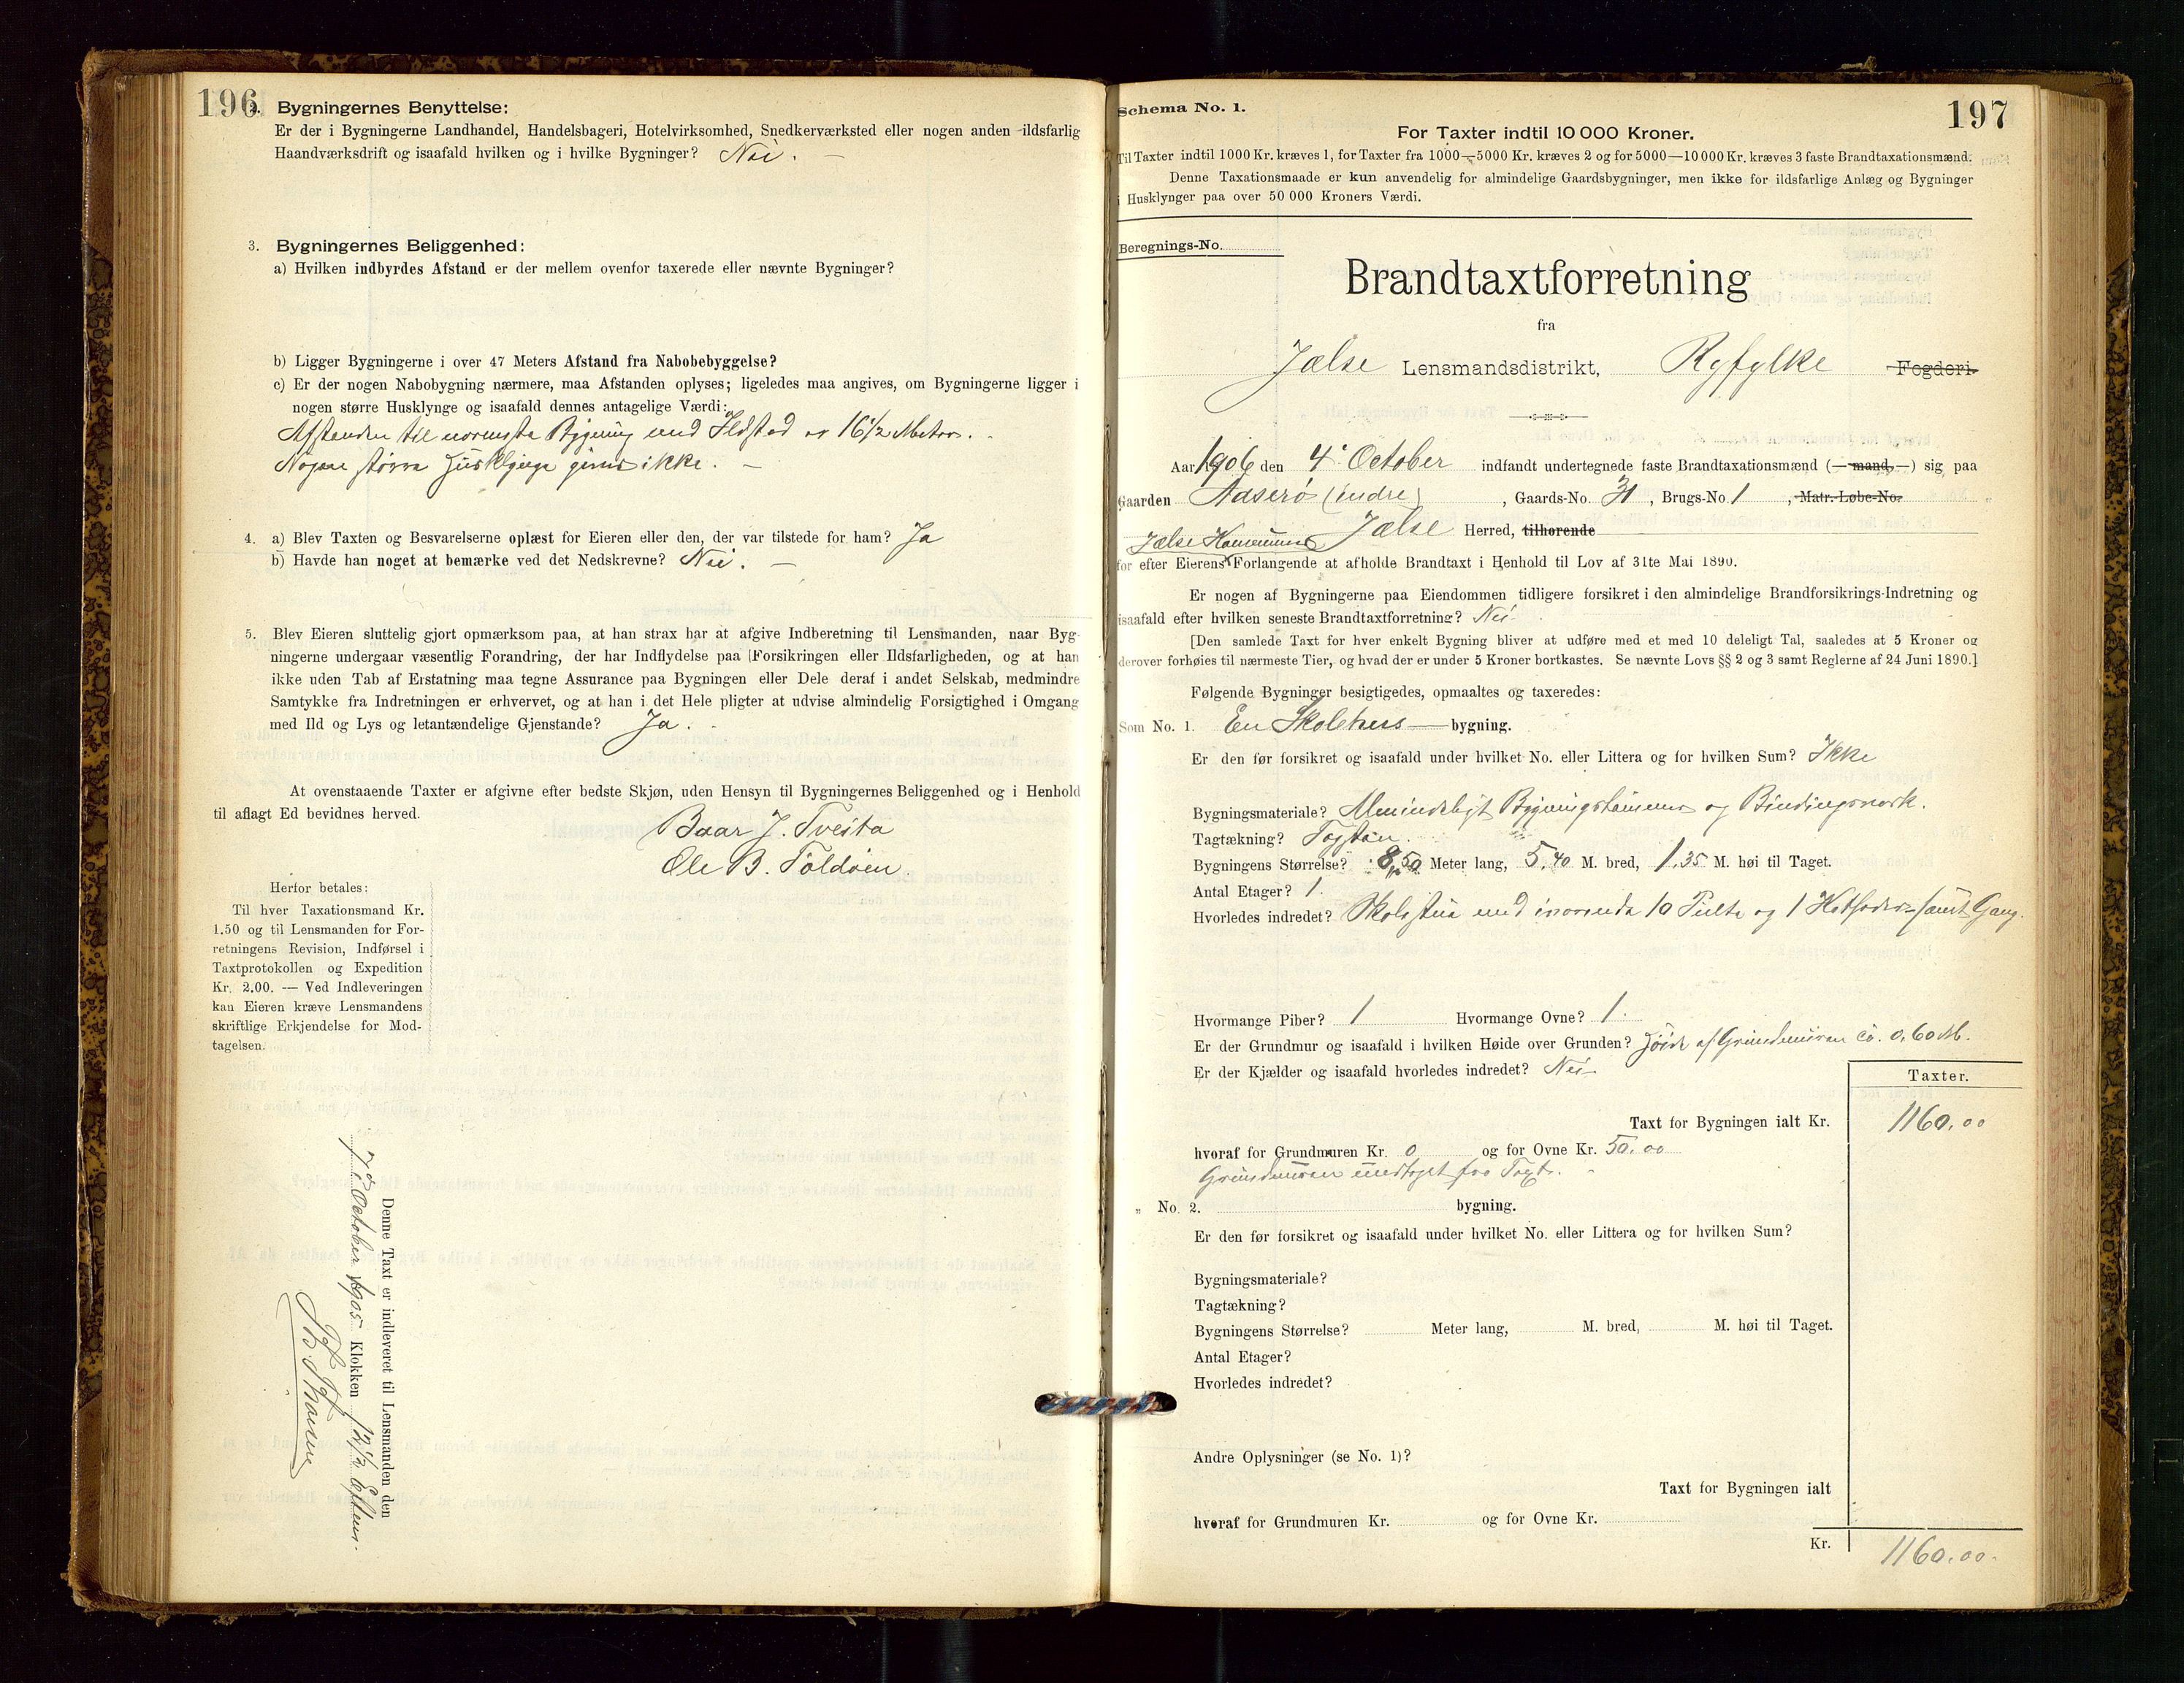 196
2. Bygningernes Benyttelse:
Er der i Bygningerne Landhandel, Handelsbageri, Hotelvirksomhed, Snedkerværksted eller nogen anden ildsfarlig
Haandværksdrift og isaafald hvilken og i hvilke Bygninger? Nei. —
3. Bygningernes Beliggenhed:
a) Hvilken indbyrdes Afstand er der mellem ovenfor taxerede eller nævnte Bygninger?
b) Ligger Bygningerne i over 47 Meters Afstand fra Nabobebyggelse?
c) Er der nogen Nabobygning nærmere, maa Afstanden oplyses; ligeledes maa angives, om Bygningerne ligger i
nogen større Husklynge og isaafald dennes antagelige Værdi:
Afstanden til nærmeste Bygning med Ildsted er 16 1/2 Meter.
Nogen større Husklynge gives ikke. —
4. a) Blev Taxten og Besvarelserne oplæst for Eieren eller den, der var tilstede for ham? Ja
b) Havde han noget at bemærke ved det Nedskrevne? Nei. —
5. Blev Eieren sluttelig gjort opmærksom paa, at han strax har at afgive Indberetning til Lensmanden, naar Byg-
ningerne undergaar væsentlig Forandring, der har Indflydelse paa Forsikringen eller Ildsfarligheden, og at han
ikke uden Tab af Erstatning maa tegne Assurance paa Bygningen eller Dele deraf i andet Selskab, medmindre
Samtykke fra Indretningen er erhvervet, og at han i det Hele pligter at udvise almindelig Forsigtighed i Omgang
med Ild og Lys og letantændelige Gjenstande? Ja.
At ovenstaaende Taxter er afgivne efter bedste Skjøn, uden Hensyn til Bygningernes Beliggenhed og i Henhold
til aflagt Ed bevidnes herved.
Baar J. Tveita
Ole B. Foldøen
Herfor betales:
Til hver Taxationsmand Kr.
1.50 og til Lensmanden for For-
retningens Revision, Indførsel i
Taxtprotokollen og Expedition
Kr. 2.00. — Ved Indleveringen
kan Eieren kræve Lensmandens
skriftlige Erkjendelse for Mod-
tagelsen.
Denne Taxt er indleveret til Lensmanden den
7de October 1905 Klokken 12 1/2 Efterm.
197
Schema No. 1.
For Taxter indtil 10 000 Kroner.
Til Taxter indtil 1000 Kr. kræves 1, for Taxter fra 1000—5000 Kr. kræves 2 og for 5000—10000 Kr. kræves 3 faste Brandtaxationsmænd.
Denne Taxationsmaade er kun anvendelig for almindelige Gaardsbygninger, men ikke for ildsfarlige Anlæg og Bygninger
i Husklynger paa over 50 000 Kroners Værdi.
Beregnings-No.
Brandtaxtforretning
fra
Jælse Lensmandsdistrikt, Ryfylke Fogderi.
Aar 1906 den 4de October indfandt undertegnede faste Brandtaxationsmænd (—mand—) sig paa
Gaarden Adserø (indre), Gaards-No. 31, Brugs-No. 1, Matr.-Løbe-No.
Jælse Herred, tilhørende
Jælse Kommune
for efter Eierens Forlangende at afholde Brandtaxt i Henhold til Lov af 31te Mai 1890.
Er nogen af Bygningerne paa Eiendommen tidligere forsikret i den almindelige Brandforsikrings-Indretning og
isaafald efter hvilken seneste Brandtaxtforretning? Nei
[Den samlede Taxt for hver enkelt Bygning bliver at udføre med et med 10 deleligt Tal, saaledes at 5 Kroner og
derover forhøies til nærmeste Tier, og hvad der er under 5 Kroner bortkastes. Se nævnte Lovs §§ 2 og 3 samt Reglerne af 24 Juni 1890.]
Følgende Bygninger besigtigedes, opmaaltes og taxeredes:
Som No. 1. En Skolehus— bygning.
Er den før forsikret og isaafald under hvilket No. eller Littera og for hvilken Sum? Ikke
Bygningsmateriale? Almindeligt Bygningstømmer og Bindingsverk.
Tagtækning? Tagsten
Bygningens Størrelse? 8,50 Meter lang, 5,40 M. bred, 1,35 M. høi til Taget.
Antal Etager? 1.
Hvorledes indredet? Skolestue med 10 Pulte og 1 samt Gang.
Hvormange Piber? 1 Hvormange Ovne? 1.
Er der Grundmur og isaafald i hvilken Høide over Grunden? Høide af Grundmuren ca. 0,60 M.
Er der Kjælder og isaafald hvorledes indredet? Nei
Taxter.
Taxt for Bygningen ialt Kr. 1160,00
hvoraf for Grundmuren Kr. 0 og for Ovne Kr. 50.00
Grundmuren undtaget fra Taxt.
„ No. 2. bygning.
Er den før forsikret og isaafald under hvilket No. eller Littera og for hvilken Sum?
Bygningsmateriale?
Tagtækning?
Bygningens Størrelse? Meter lang, M. bred, M. høi til Taget.
Antal Etager?
Hvorledes indredet?
Andre Oplysninger (se No. 1)?
Taxt for Bygningen ialt
hvoraf for Grundmuren Kr. og for Ovne Kr.
Kr. 1160,00.